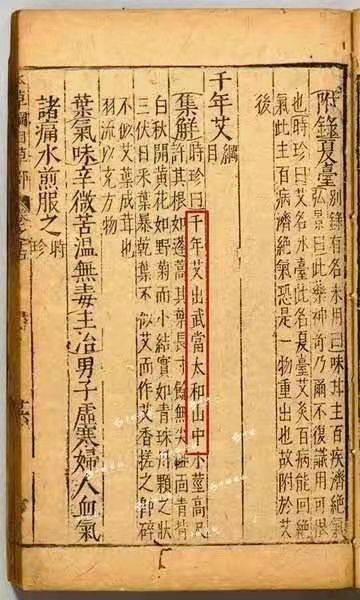 附錄夏臺
別錄有名未用曰味甘主百疾濟絕氣
弘景曰此藥神奇乃爾不復識用可恨
也時珍曰艾名水臺此名夏臺艾灸百病能回絕
氣此主百病濟絕氣恐是一物重出也故附於艾
後
千年艾綱目
集解時珍曰千年艾出武當太和山中小莖高尺
許其根如蓬蒿其葉長寸餘無尖面青背
白秋開黃花如野菊而小結實如青珠丹顆之狀
三伏日采葉暴乾葉不似艾而作艾香搓之即碎
不似艾葉成茸也
羽流以充方物
葉氣味辛微苦溫無毒主治男子虛寒婦人血氣
諸痛水煎服之時珍
草綱目草部